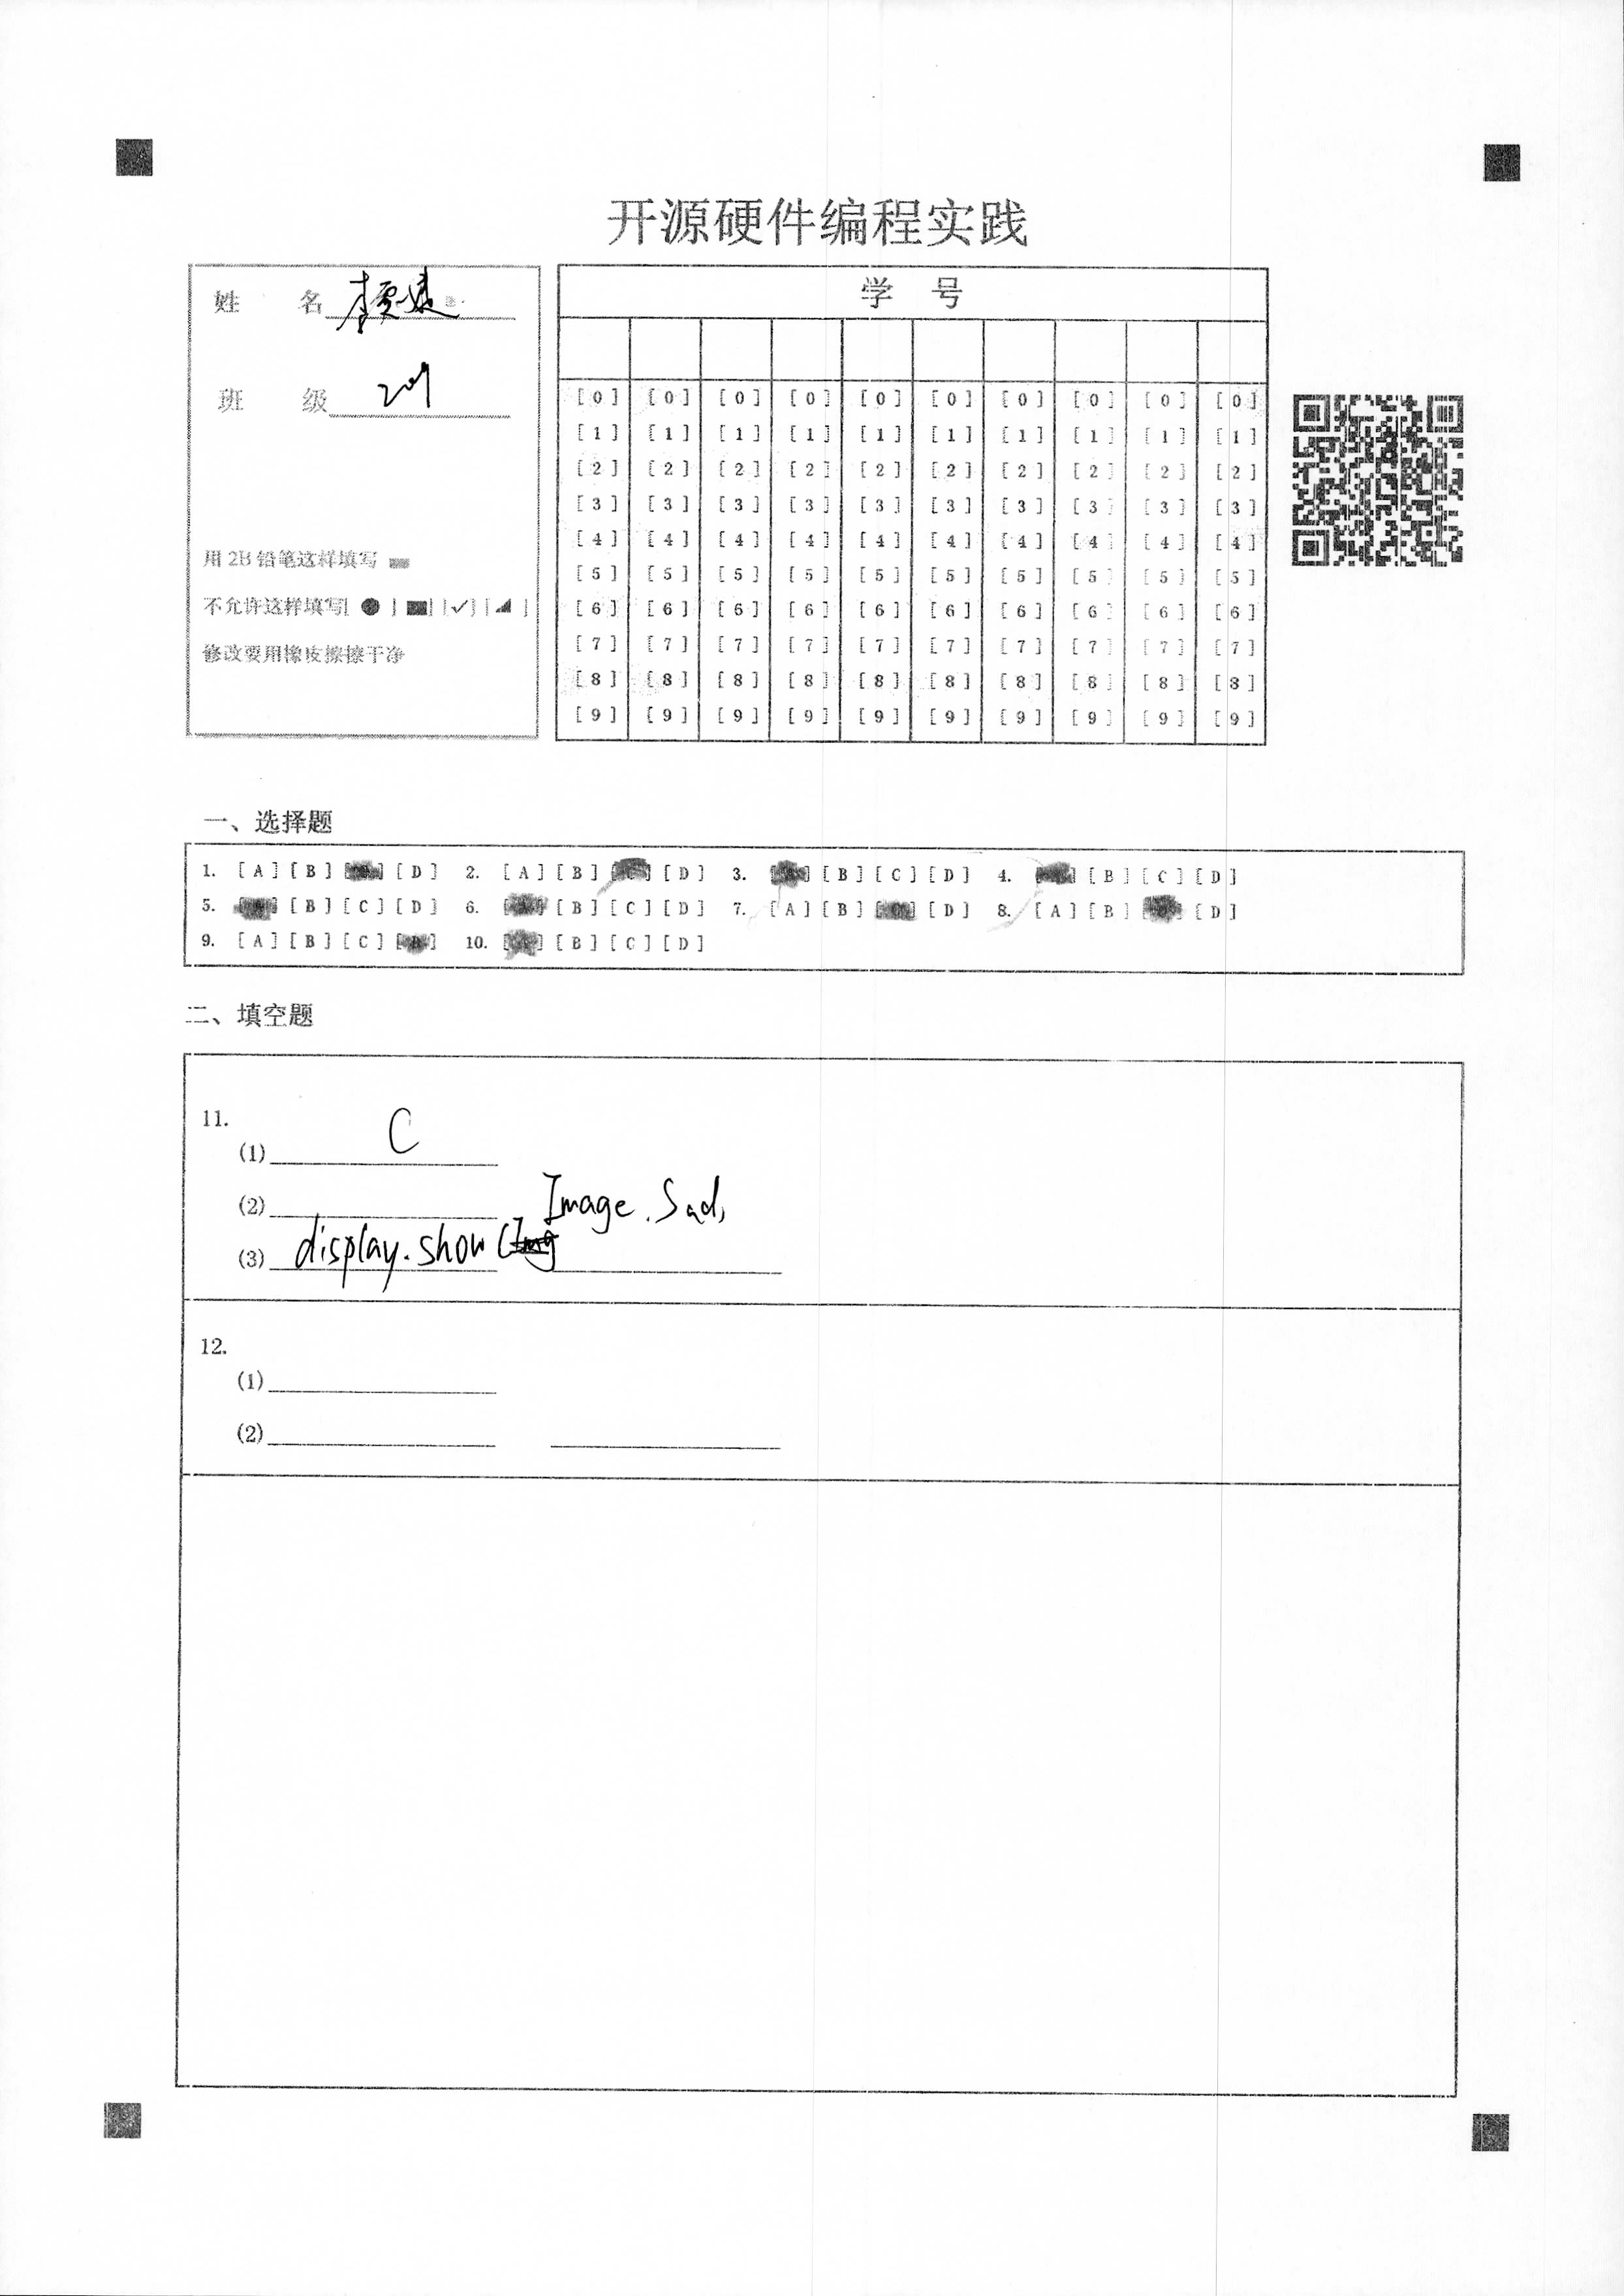 开源硬件编程实践
姓 名 李
班 级 209
用 2B 铅笔这样填写
不允许这样填写[ ● ] [■] [✓] [◢ ]
修改要用橡皮擦擦干净
学 号
[0] [0] [0] [0] [0] [0] [0] [0] [0] [0]
[1] [1] [1] [1] [1] [1] [1] [1] [1] [1]
[2] [2] [2] [2] [2] [2] [2] [2] [2] [2]
[3] [3] [3] [3] [3] [3] [3] [3] [3] [3]
[4] [4] [4] [4] [4] [4] [4] [4] [4] [4]
[5] [5] [5] [5] [5] [5] [5] [5] [5] [5]
[6] [6] [6] [6] [6] [6] [6] [6] [6] [6]
[7] [7] [7] [7] [7] [7] [7] [7] [7] [7]
[8] [8] [8] [8] [8] [8] [8] [8] [8] [8]
[9] [9] [9] [9] [9] [9] [9] [9] [9] [9]
一、选择题
1. [A] [B] [C] [D] 2. [A] [B] [C] [D] 3. [A] [B] [C] [D] 4. [A] [B] [C] [D]
5. [A] [B] [C] [D] 6. [A] [B] [C] [D] 7. [A] [B] [C] [D] 8. [A] [B] [C] [D]
9. [A] [B] [C] [D] 10. [A] [B] [C] [D]
二、填空题
11.
(1) C
(2)
(3) display.show( Image.Sad,
12.
(1)
(2)